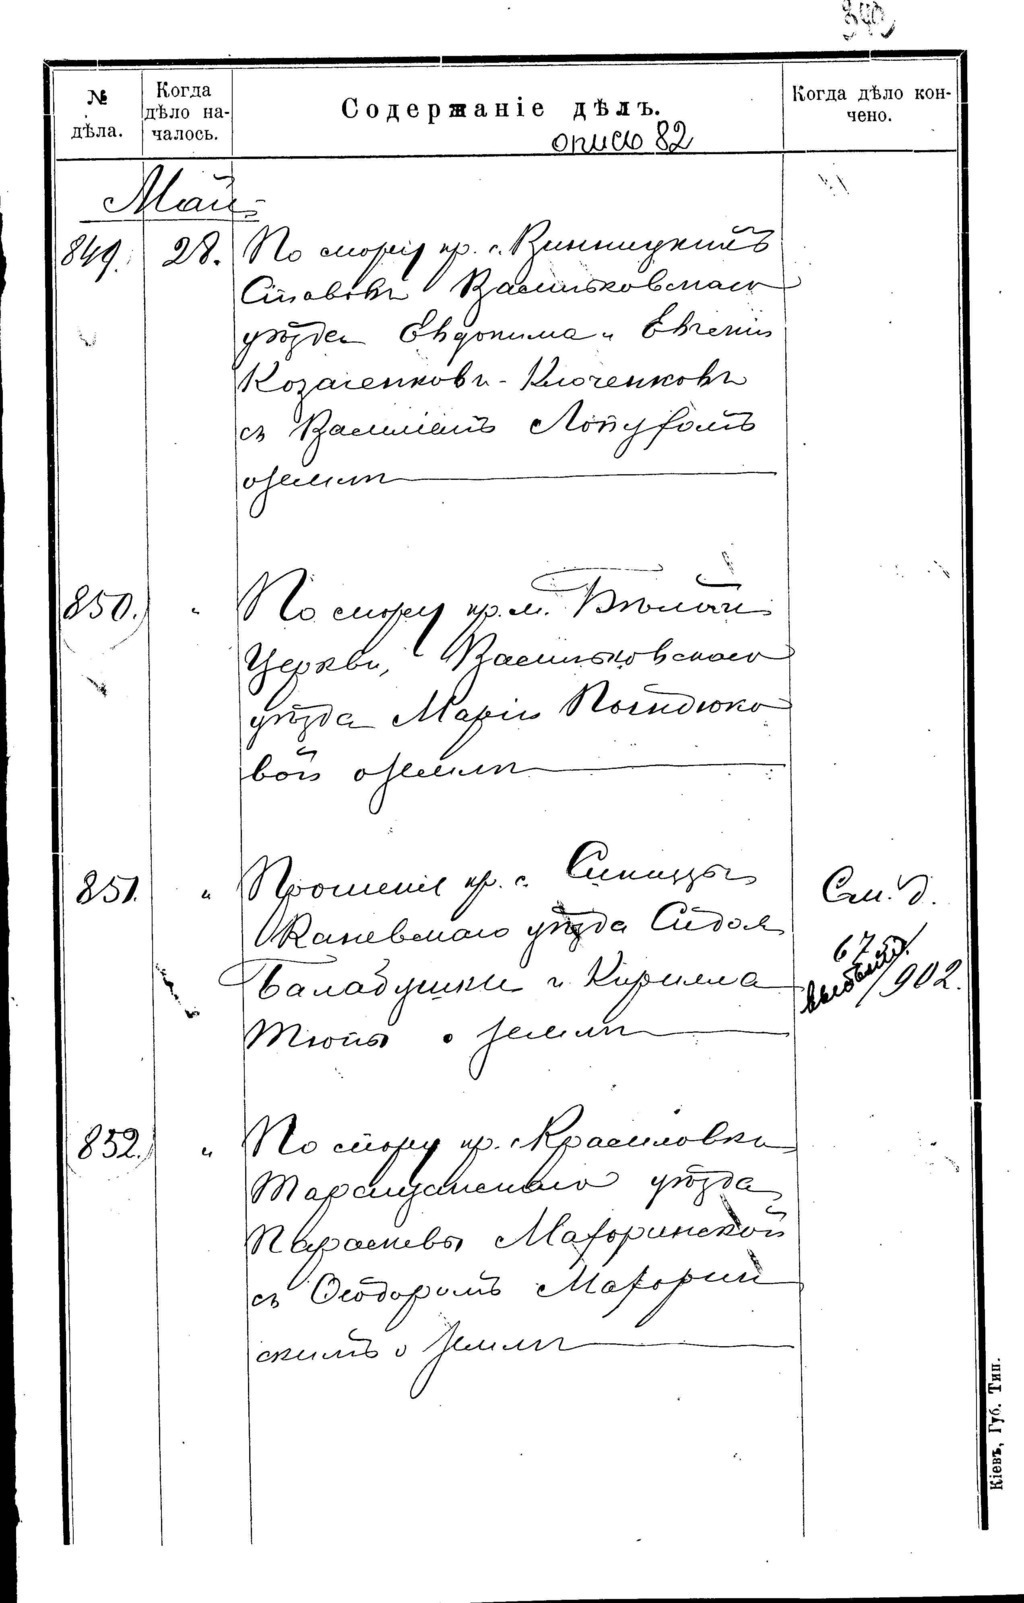 № дѣла.
Когда дѣло началось.
Содержаніе дѣлъ.
Когда дѣло кончено.
опись 82
Май
849. 28. По спору кр. с. Винницкихъ
Ставовъ Васильковскаго
уѣзда Евдокима и Евгенія
Козаченковъ-Ключенковъ
съ Василіемъ Лопухомъ
о землѣ
850. " По спору кр. м. Бѣлой
Церкви, Васильковскаго
уѣзда Маріи
вой о землѣ
851. " Прошеніе кр. с. Синицы
Каневскаго уѣзда Сидора
Балабушки и Кирилла
Тюпы о землѣ
См. д.
67
/902.
852. " По спору кр. с. Красиловки
Таращанскаго уѣзда
Параскевы Мафоринской
съ Ѳеодоромъ Мафорин
скимъ о землѣ
Кіевъ, Губ. Тип.